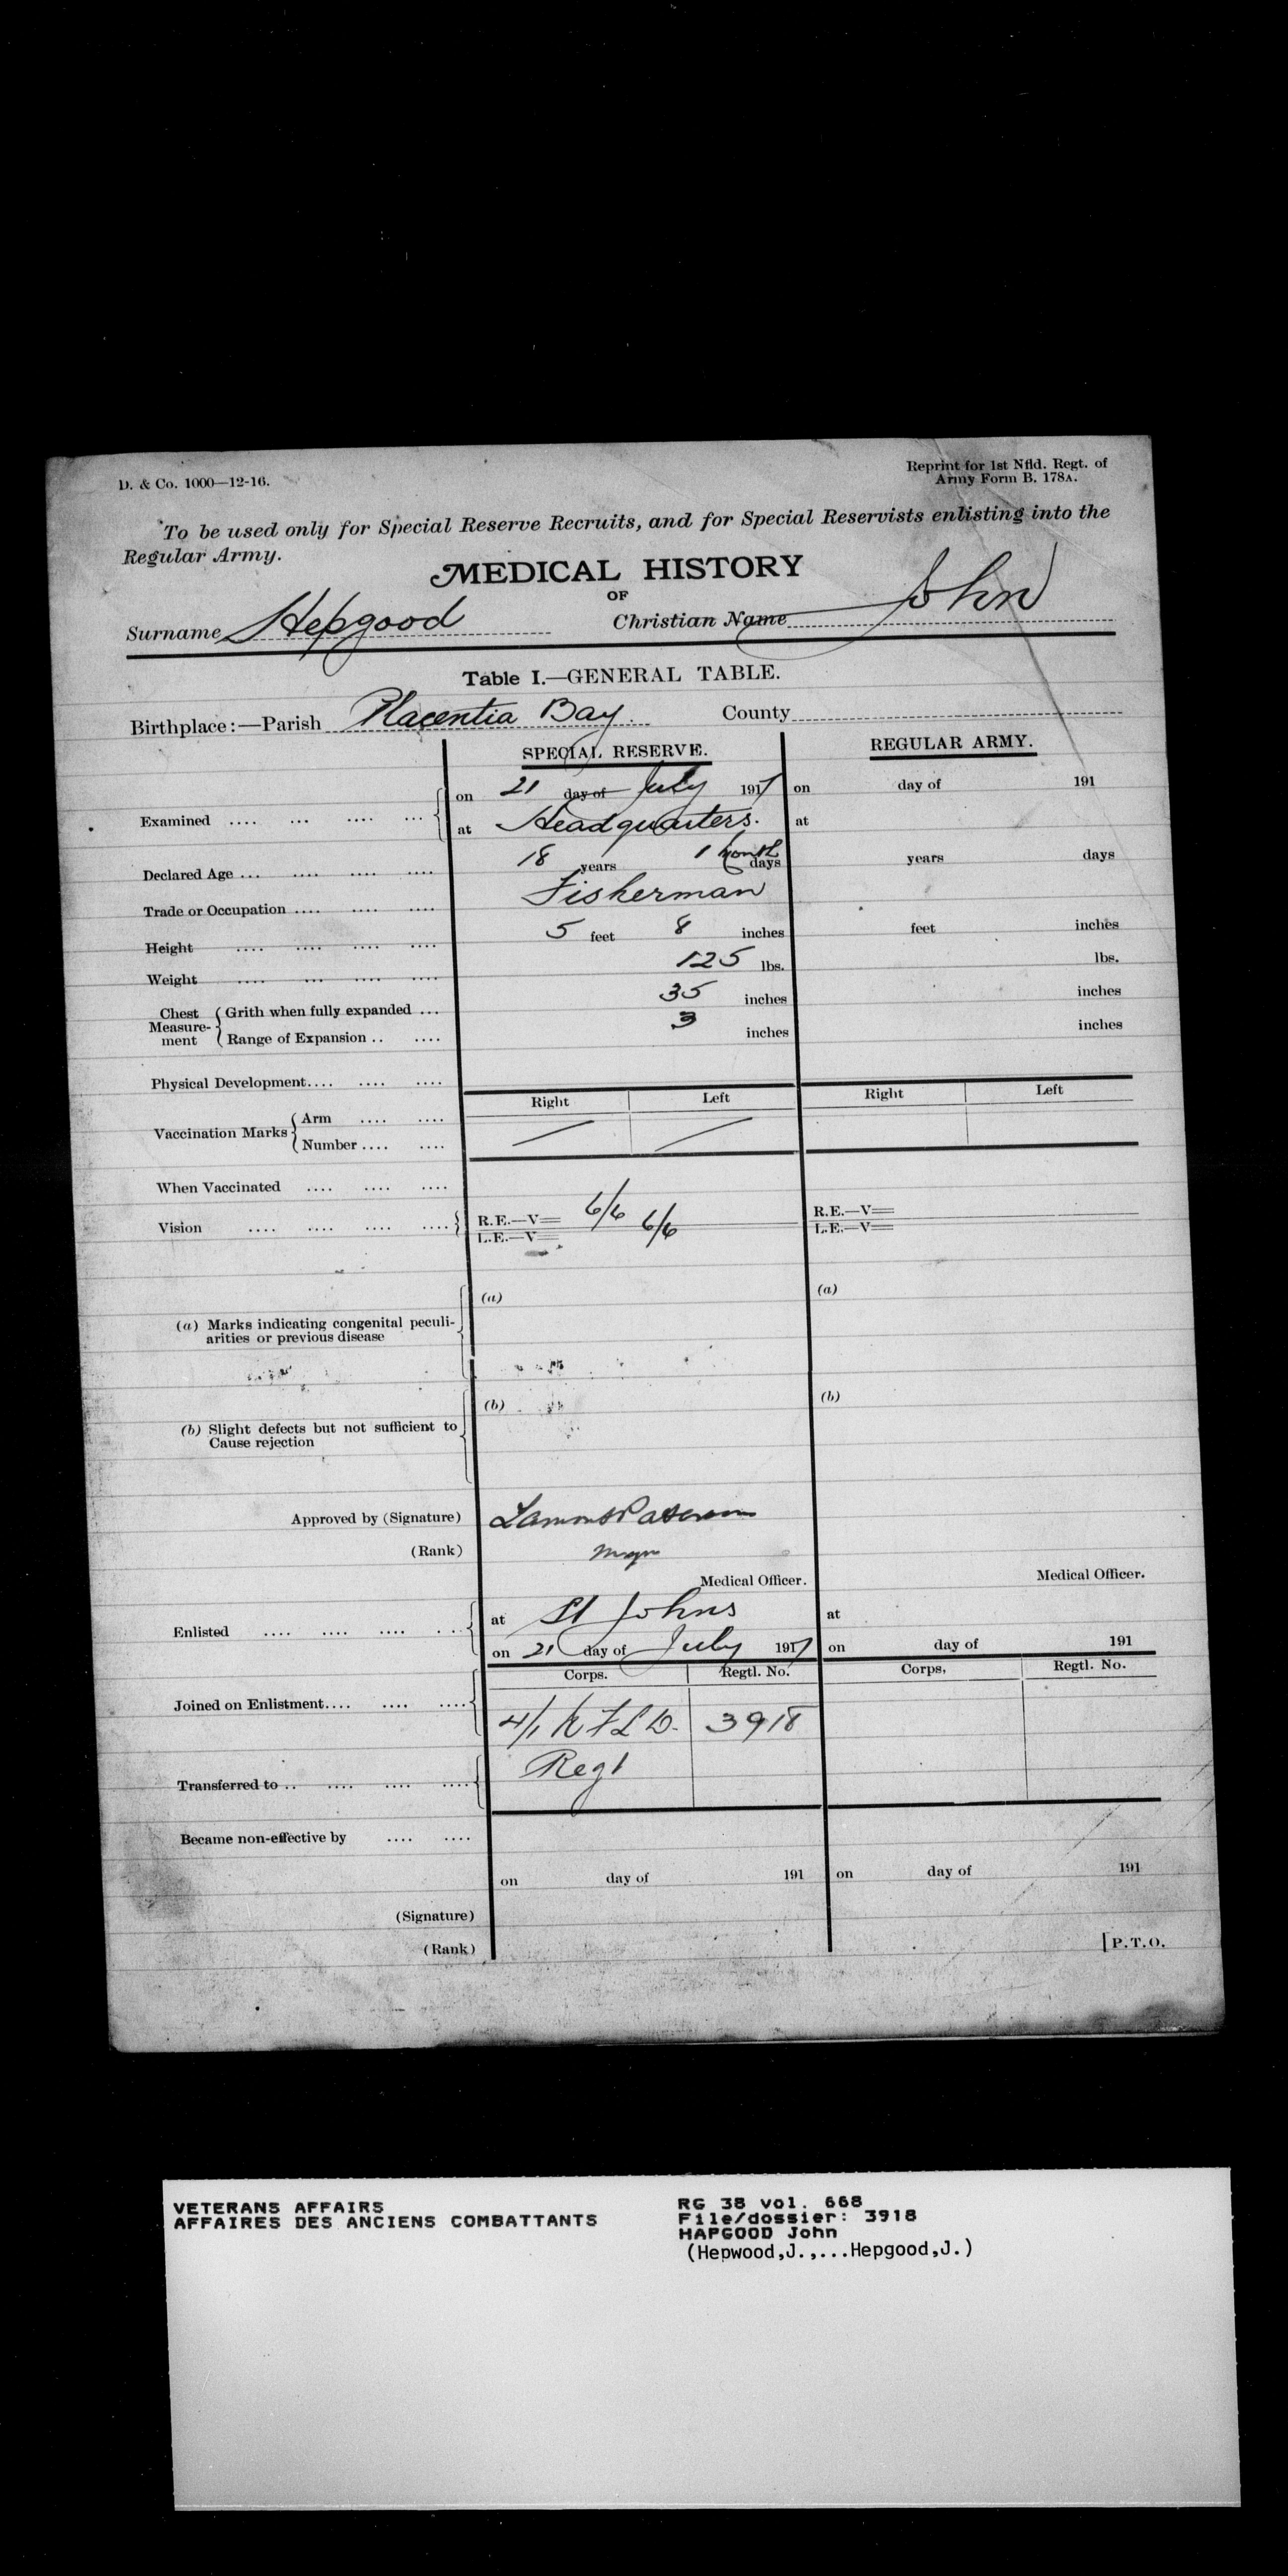 D. & Co. 1000—12-16.
Reprint for 1st Nfld. Regt. of
Army Form B. 178A.
To be used only for Special Reserve Recruits, and for Special Reservists enlisting into the
Regular Army.
MEDICAL HISTORY
OF
Surname Hepgood Christian Name John
Table I.—GENERAL TABLE.
Birthplace:—Parish Placentia Bay. County
SPECIAL RESERVE. REGULAR ARMY.
Examined .... ... .... ... on 21 day of July 1917 on day of 191
at Headquarters. at
Declared Age ... .... .... .... 18 years 1 month days years days
Trade or Occupation .... .... .... Fisherman
Height .... .... .... .... 5 feet 8 inches feet inches
Weight .... ... .... .... 125 lbs. lbs.
Chest Measure-ment Grith when fully expanded ... 35 inches inches
Range of Expansion .. .... 3 inches inches
Physical Development.... .... ....
Right Left Right Left
Vaccination Marks Arm .... ....
Number .... ....
When Vaccinated .... .... ....
Vision .... .... .... .... R.E.—V= 6/6 R.E.—V=
L.E.—V= 6/6 L.E.—V=
(a) (a)
(a) Marks indicating congenital peculi-
arities or previous disease
(b) (b)
(b) Slight defects but not sufficient to
Cause rejection
Approved by (Signature) Lamont Paterson
(Rank) Major
Medical Officer. Medical Officer.
Enlisted .... .... .... ... at St Johns at
on 21 day of July 1917 on day of 191
Corps. Regtl. No. Corps, Regtl. No.
Joined on Enlistment.... .... .... 3918
Regt
Transferred to .. .... .... ....
Became non-effective by .... ....
on day of 191 on day of 191
(Signature)
(Rank)
[P.T.O.
VETERANS AFFAIRS
AFFAIRES DES ANCIENS COMBATTANTS
RG 38 vol. 668
File/dossier: 3918
HAPGOOD John
(Hepwood,J.,...Hepgood,J.)